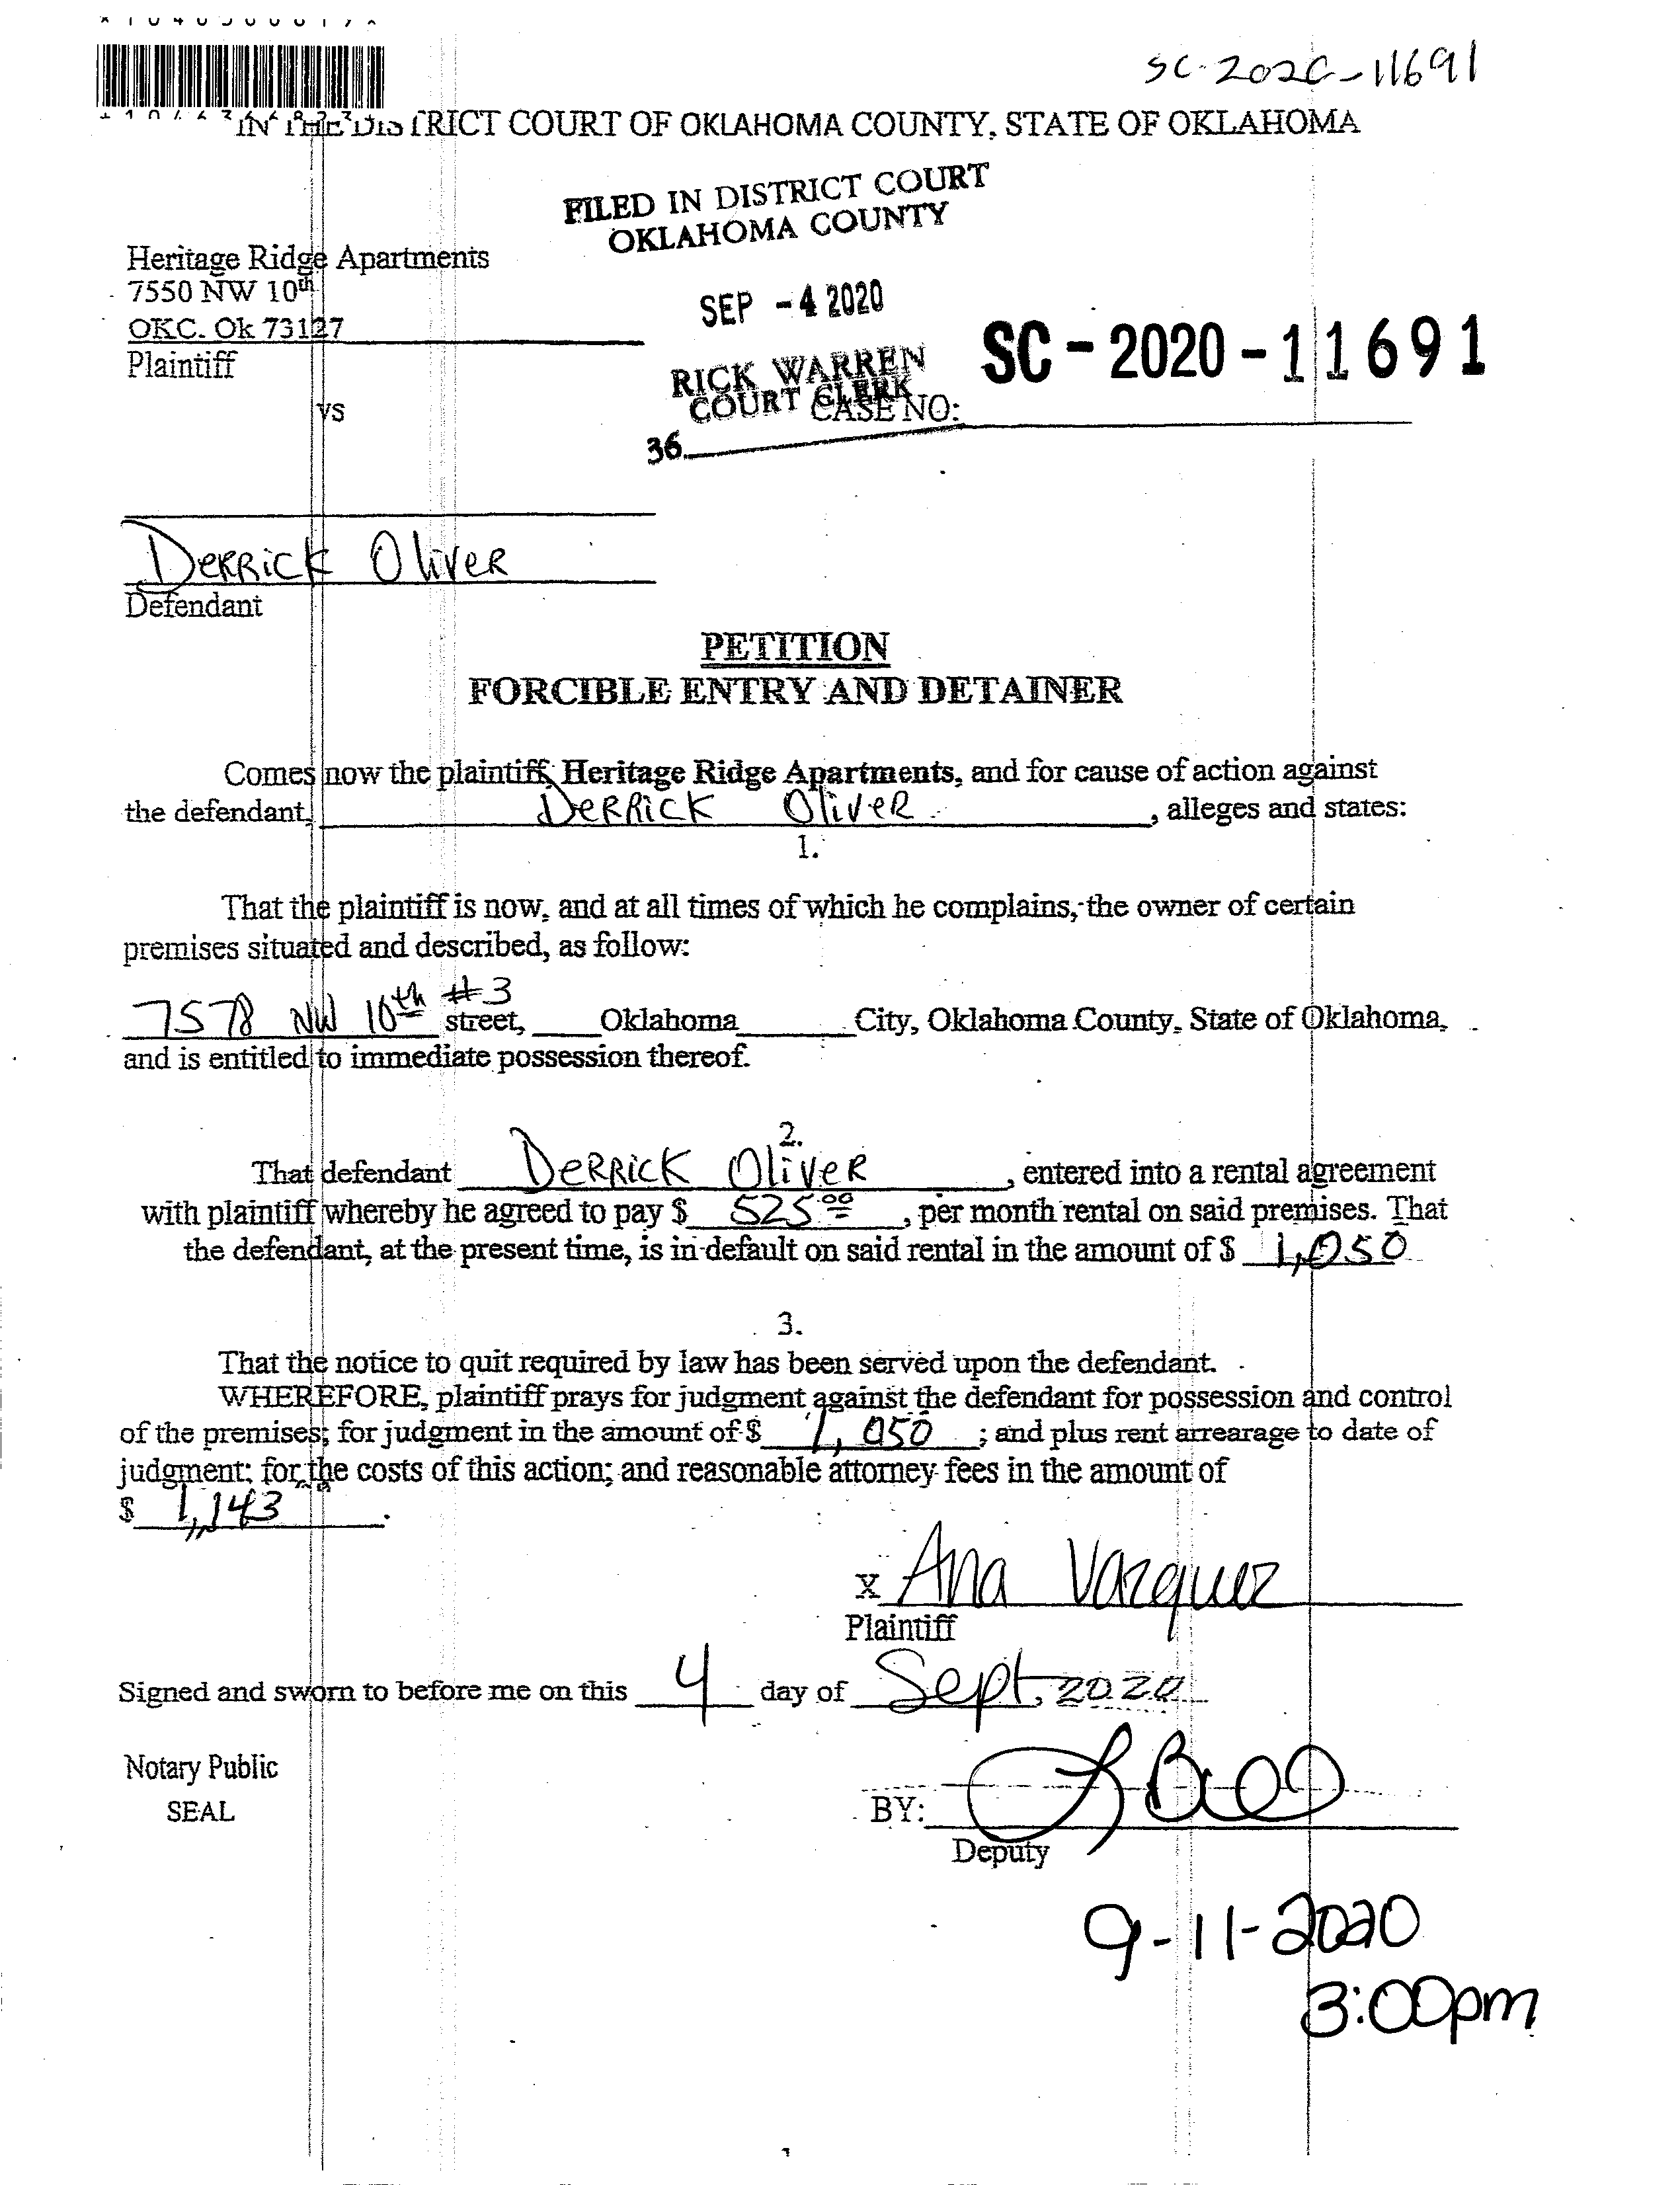 SC-2020-11691
IN THE DISTRICT COURT OF OKLAHOMA COUNTY, STATE OF OKLAHOMA
FILED IN DISTRICT COURT
OKLAHOMA COUNTY
Heritage Ridge Apartments
7550 NW 10th
OKC. Ok 73127
Plaintiff
SEP -4 2020
SC-2020-11691
RICK WARREN
COURT CLERK
CASE NO:
vs
36
Derrick Oliver
Defendant
PETITION
FORCIBLE ENTRY AND DETAINER
Comes now the plaintiff, Heritage Ridge Apartments, and for cause of action against
the defendant, Derrick Oliver, alleges and states:
1.
That the plaintiff is now, and at all times of which he complains, the owner of certain
premises situated and described, as follow:
7578 NW 10th #3 street, Oklahoma City, Oklahoma County, State of Oklahoma,
and is entitled to immediate possession thereof.
2.
That defendant Derrick Oliver, entered into a rental agreement
with plaintiff whereby he agreed to pay $ 525.00, per month rental on said premises. That
the defendant, at the present time, is in default on said rental in the amount of $ 1,050
3.
That the notice to quit required by law has been served upon the defendant.
WHEREFORE, plaintiff prays for judgment against the defendant for possession and control
of the premises; for judgment in the amount of $ 1,050; and plus rent arrearage to date of
judgment; for the costs of this action; and reasonable attorney fees in the amount of
$ 1,143.
X Ana Vazquez
Plaintiff
Signed and sworn to before me on this 4 day of Sept, 2020
Notary Public
SEAL
BY:
Deputy
9-11-2020
3:00pm